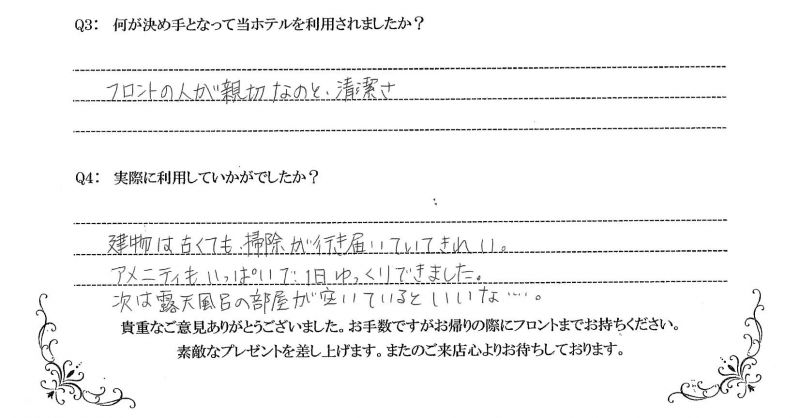 Q3： 何が決め手となって当ホテルを利用されましたか？
フロントの人が親切なのと、清潔さ
Q4： 実際に利用していかがでしたか？
建物は古くても、掃除が行き届いていてきれい。
アメニティもいっぱいで1日ゆっくりできました。
次は露天風呂の部屋が空いているといいな…。
貴重なご意見ありがとうございました。お手数ですがお帰りの際にフロントまでお持ちください。
素敵なプレゼントを差し上げます。またのご来店心よりお待ちしております。